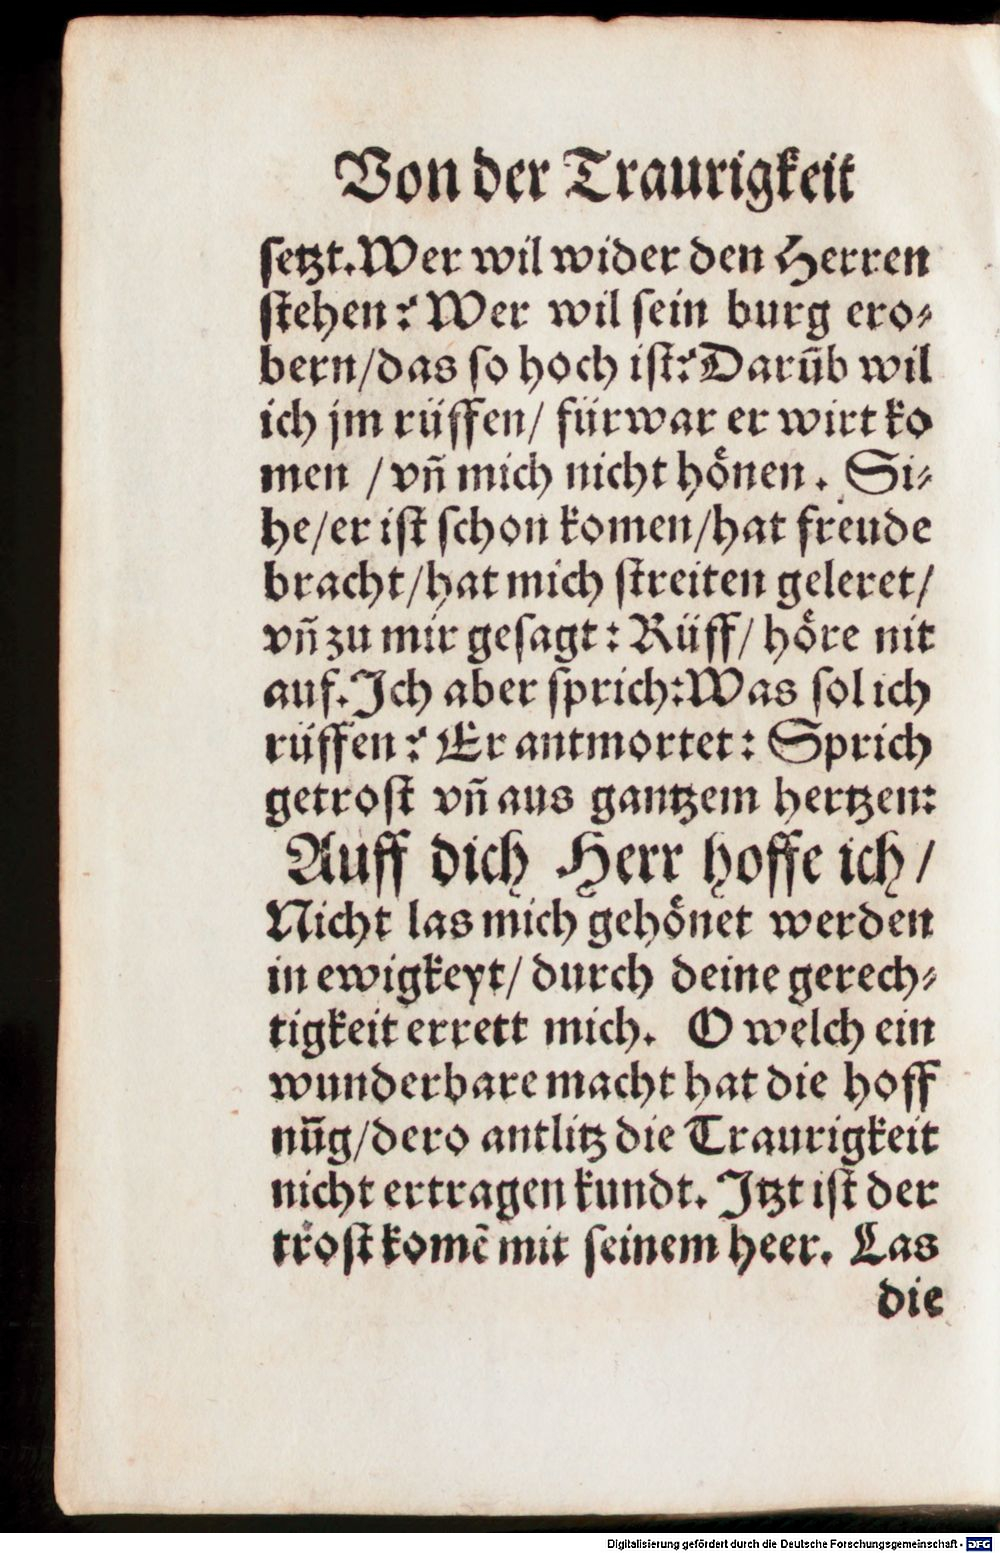 Von der Traurigkeit
setzt. Wer wil wider den Herren
stehen? Wer wil sein burg ero-
bern/das so hoch ist? Darūb wil
ich jm rüffen/ fürwar er wirt ko
men /vñ mich nicht hönen. Si-
he/er ist schon komen/hat freude
bracht/hat mich streiten geleret/
vñ zu mir gesagt: Rüff/ höre nit
auf. Ich aber sprich: Was sol ich
rüffen? Er antmortet: Sprich
getrost vñ aus gantzem hertzen:
Auff dich Herr hoffe ich/
Nicht las mich gehönet werden
in ewigkeyt/ durch deine gerech-
tigkeit errett mich. O welch ein
wunderbare macht hat die hoff
nūg/dero antlitz die Traurigkeit
nicht ertragen kundt. Itzt ist der
trost komē mit seinem heer. Las
die
Digitalisierung gefördert durch die Deutsche Forschungsgemeinschaft - DFG